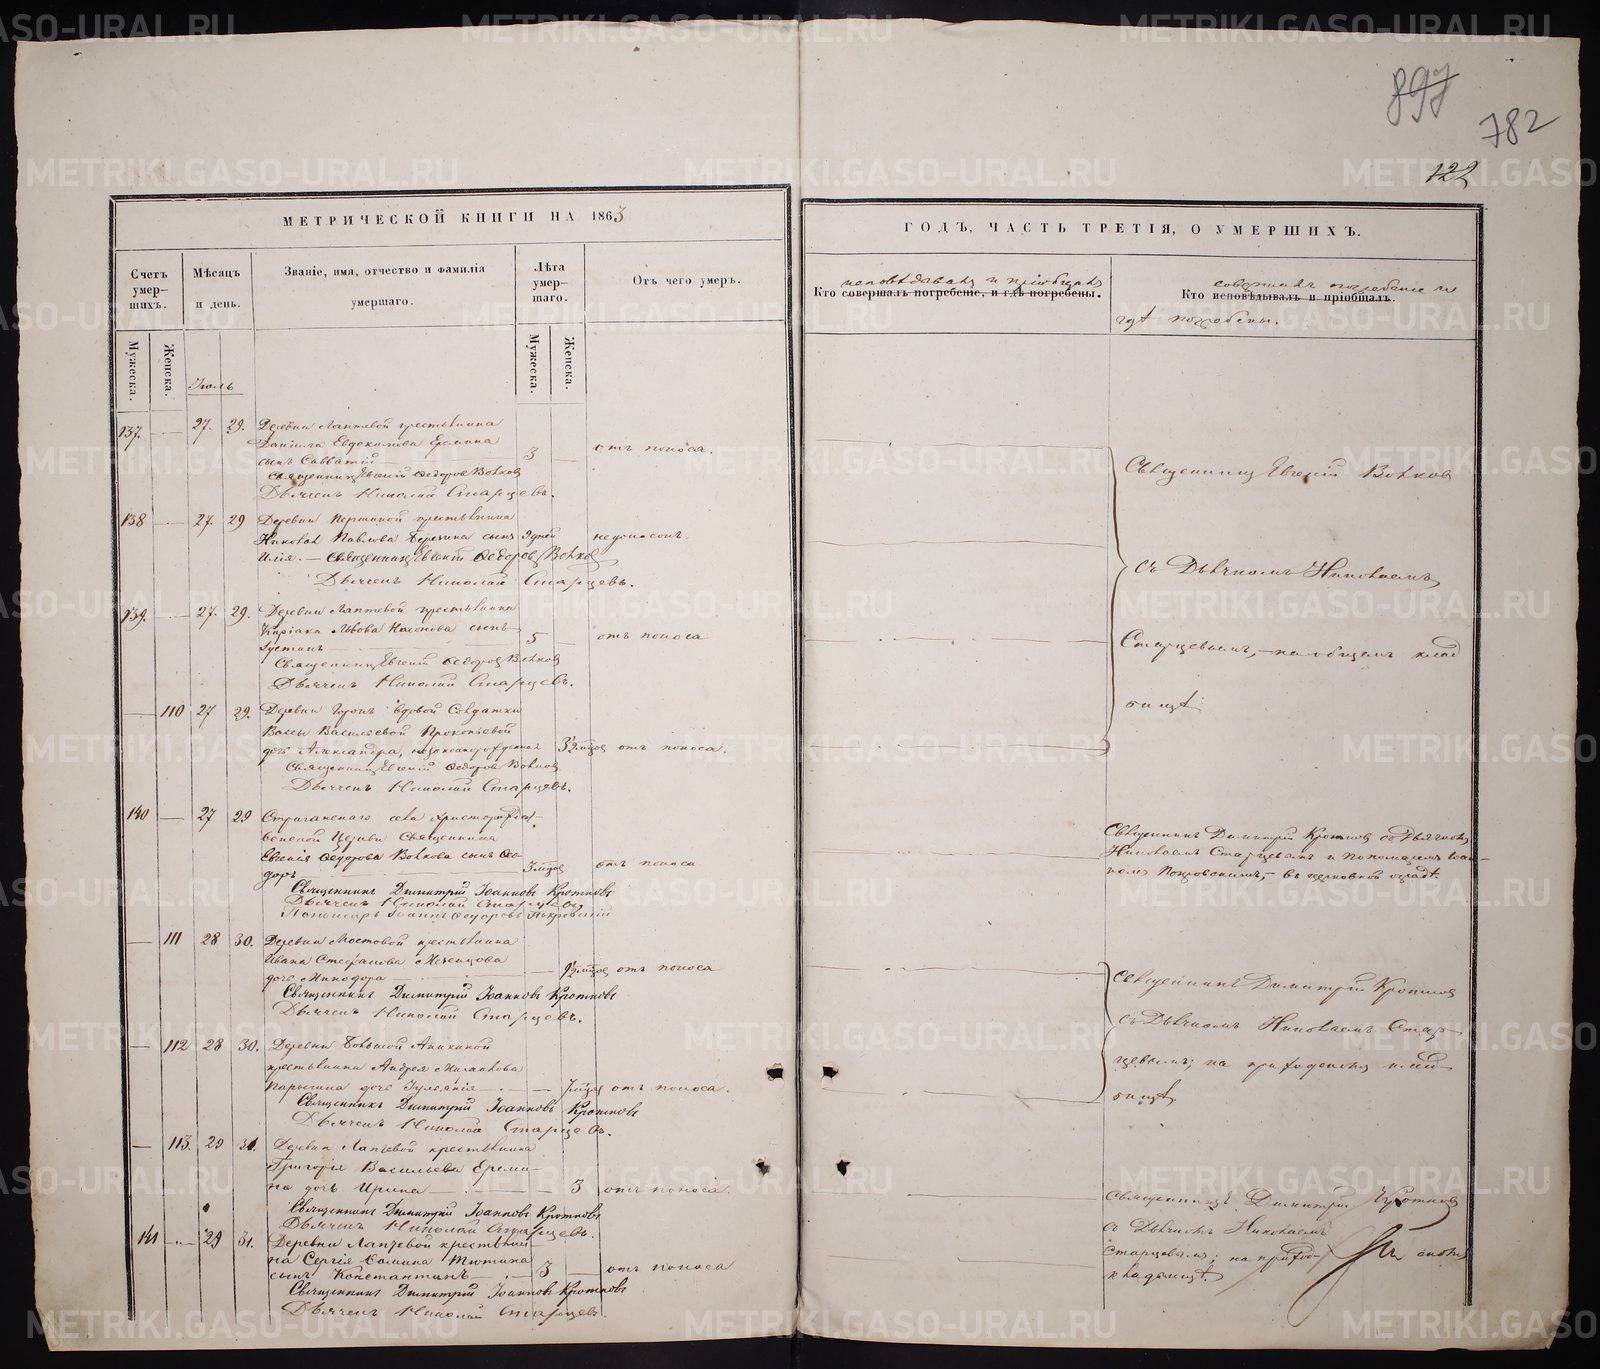 METRIKI.GASO-URAL.RU
897
782
122
МЕТРИЧЕСКОЙ КНИГИ НА 1863
ГОДЪ, ЧАСТЬ ТРЕТІЯ, О УМЕРШИХЪ.
Счетъ умер-шихъ.
Мѣсяцъ и день.
Званіе, имя, отчество и фамилія умершаго.
Лѣта умер-шаго.
Отъ чего умеръ.
Кто совершалъ погребеніе, и гдѣ погребены.
исповѣдывалъ и пріобщалъ
Кто исповѣдывалъ и пріобщалъ.
совершалъ погребеніе и
гдѣ погребены.
Мужеска.
Женска.
Мужеска.
Женска.
Іюль
137. 27. 29. Деревни Лаптевой крестьянина
Даніила Евдокимова Еремина
сынъ Савватій 3 отъ поноса.
Священникъ Евгеній Ѳедоровъ Волковъ
Дьячекъ Николай Старцевъ.
138 27. 29 Деревни Першиной крестьянина
Павлова сынъ 9 дней недоносокъ.
Илія. — Священникъ Евгеній Ѳедоровъ Волковъ
Дьячекъ Николай Старцевъ.
139. 27. 29. Деревни Лаптевой крестьянина
Львова сынъ
Іустинъ 5 отъ поноса
Священникъ Евгеній Ѳедоровъ Волковъ
Дьячекъ Николай Старцевъ.
110 27 29. Деревни вдовой Солдатки
Васильевой Прокопьевой
дочь Александра, незаконнорожденная отъ поноса.
Священникъ Евгеній Ѳедоровъ Волковъ
Дьячекъ Николай Старцевъ.
Священникъ Евгеній Волковъ
съ Дьячкомъ Николаемъ
Старцевымъ, — на общемъ клад
бищѣ
140 27 29 Стриганскаго села
Церкви Священника
Евгенія Ѳедорова Волкова сынъ Ѳео
доръ отъ поноса
Священникъ Димитрій Іоанновъ Кротковъ
Дьячекъ Николай Старцевъ
Пономарь Іоаннъ Ѳедоровъ Покровскій
Священникъ Димитрій Кротковъ съ Дьячкомъ
Николаемъ Старцевымъ и Пономаремъ Іоан-
номъ Покровскимъ, — въ церковной оградѣ.
111 28 30. Деревни Мостовой крестьянина
Ивана Стефанова
дочь Минодора отъ поноса
Священникъ Димитрій Іоанновъ Кротковъ
Дьячекъ Николай Старцевъ.
112 28 30. Деревни Большой
крестьянина Андрея
дочь Іуліанія отъ поноса.
Священникъ Димитрій Іоанновъ Кротковъ
Дьячекъ Николай Старцевъ.
Священникъ Димитрій Кротковъ
съ Дьячкомъ Николаемъ Стар-
цевымъ; на приходскомъ клад
бищѣ
113. 29 31. Деревни Лаптевой крестьянина
Григорія Васильева Ереми-
на дочь Ирина 3 отъ поноса
Священникъ Димитрій Іоанновъ Кротковъ
Дьячекъ Николай Старцевъ.
141 29 31. Деревни Лаптевой крестьяни
на Сергія
сынъ Константинъ 3 отъ поноса
Священникъ Димитрій Іоанновъ Кротковъ
Дьячекъ Николай Старцевъ
Священникъ Димитрій Кротковъ
съ Дьячкомъ Николаемъ
Старцевымъ; на приход-
кладбищѣ.